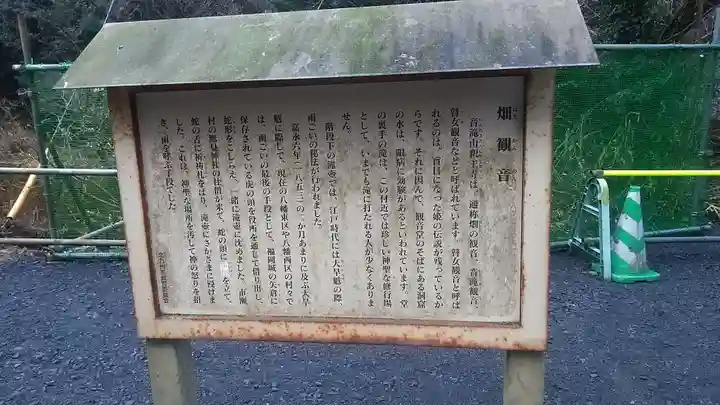 畑観音
音滝山釈王寺は、通称畑の観音、音滝観音、
瞽女観音などと呼ばれています。瞽女観音と呼ば
れるのは、盲目になった姫の伝説が残っているか
らです。それに因んで、観音堂のそばにある洞窟
の水は、眼病に効験があるといわれています。堂
の裏手の滝は、この付近では珍しい神聖な修行場
として、いまでも滝に打たれる人が少なくありま
せん。
階段下の滝壺では、江戸時代には大旱魃の際、
雨ごいの秘法が行われました。
嘉永六年(一八五三)の二か月あまりに及ぶ大旱
魃に際して、現在の八幡東区や八幡西区の村々で
は、雨ごいの最後の手段として、福岡城の矢倉に
保存されている虎の頭を役所を通じて借り出し、
蛇形をこしらえ、一緒に滝壺に沈めました。市瀬
村の鷹見神社の社僧が来て、蛇の頭に を立て、
蛇の舌に祈祷札をはり、滝壺にさかさまに浸けま
した。これは、神聖な場所を汚して神の怒りを招
き、雨を呼ぶ手段でした。